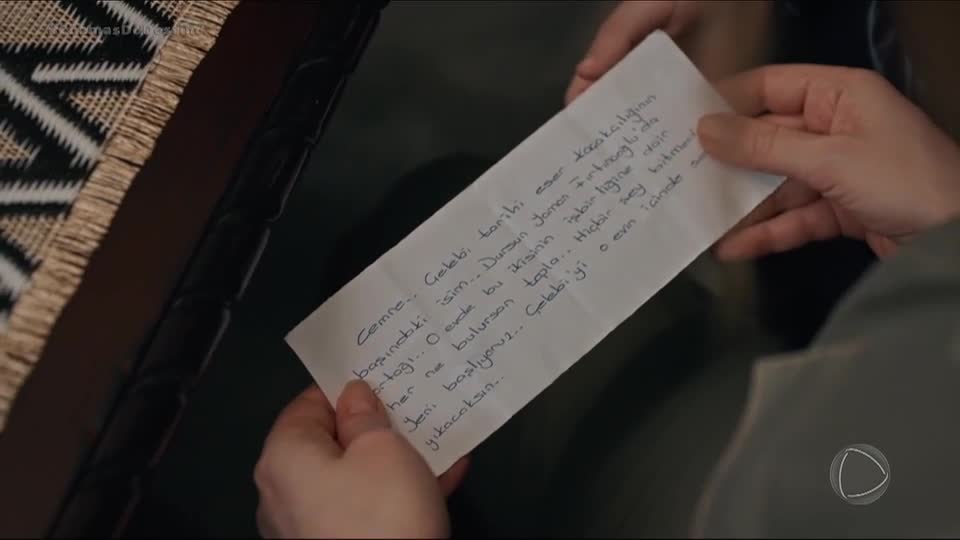 Cemre.. Çelebi tarihi eser kaçakçılığının
başındaki isim.. Dursun Yaman Fırtınaoğlu'da
ortağı.. O evde bu ikisinin işbirliğine dair
her ne bulursan topla.. Hiçbir şey bitmedi
Yeni başlıyoruz.. Çelebi'yi o evin içinde
yıkacaksın..